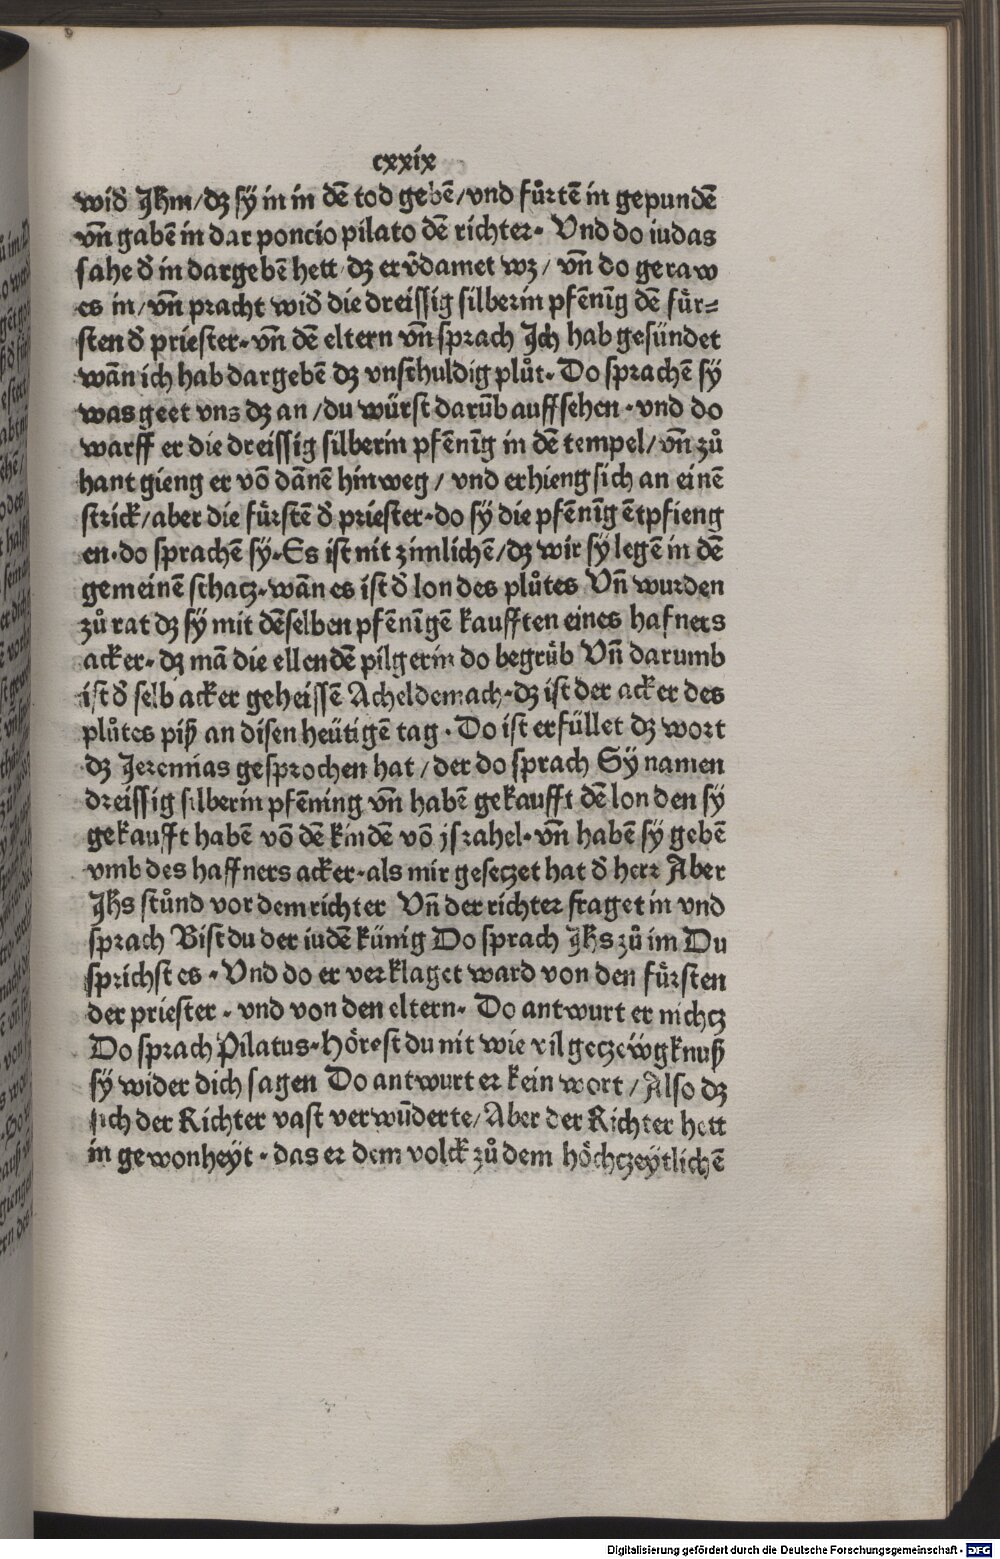 cxxix
wid᷒ Jhm/dz sy in in dē tod gebē/vnd fůrtē in gepundē
vn̄ gabē in dar poncio pilato dē richter· Vnd do iudas
sahe d᷒ in dargebē hett dz er v᷒damet wz/ vn̄ do geraw
es in/vn̄ pracht wid᷒ die dreissig silberin pfēnīg dē für-
sten d᷒ priester·vn̄ dē eltern vn̄ sprach Jch hab gesündet
wān ich hab dargebē dz vnschuldig plůt· Do sprachē sy
was geet vns dz an/du würst darūb auffsehen·vnd do
warff er die dreissig silberin pfēnīg in dē tempel/vn̄ zů
hant gieng er vō dānē hinweg/ vnd erhieng sich an einē
strick/aber die fürstē d᷒ priester·do sy die pfēnīg ētpfieng
en·do sprachē sy·Es ist nit zimlichē/dz wir sy legē in dē
gemeinē schacz·wān es ist d᷒ lon des plůtes Vn̄ wurden
zů rat dz sy mit dēselben pfēnīgē kaufften eines hafners
acker·dz mā die ellendē pilgerin do begrüb Vn̄ darumb
ist d᷒ selb acker geheissē Acheldemach·dz ist der acker des
plůtes piß an disen heütigē tag· Do ist erfüllet dz wort
dz Jeremias gesprochen hat/der do sprach Sy namen
dreissig silberin pfēning vn̄ habē gekaufft dē lon den sy
gekaufft habē vō dē kindē vō jsrahel·vn̄ habē sy gebē
vmb des haffners acker·als mir geseczet hat d᷒ herr Aber
Jhs stůnd vor dem richter Vn̄ der richter fraget in vnd
sprach Bist du der iudē künig Do sprach Jhs zů im Du
sprichst es· Vnd do er verklaget ward von den fürsten
der priester·vnd von den eltern· Do antwurt er nichcz
Do sprach Pilatus·Hörest du nit wie vil geczewgknuß
sy wider dich sagen Do antwurt er kein wort/Also dz
sich der Richter vast verwūderte/Aber der Richter hett
in gewonheyt·das er dem volck zů dem höchczeytlichē
Digitalisierung gefördert durch die Deutsche Forschungsgemeinschaft - DFG